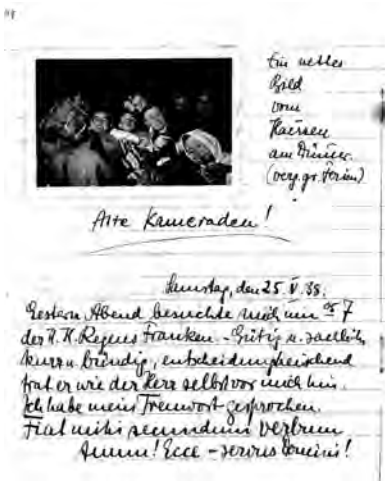 Ein nettes
Bild
vom
am
(verg. gr. Ferien)
Alte Kameraden!
Samstag, den 25. V. 35.
Gestern Abend besuchte mich um 7
der H. H. Regens Franken - Gütig u. sachlich,
kurz u. bündig, entscheidungheischend
trat er wie der Herr selbst vor mich hin.
Ich habe mein Treuwort gesprochen.
Fiat mihi secundum verbum
tuum! Ecce - servus Domini!